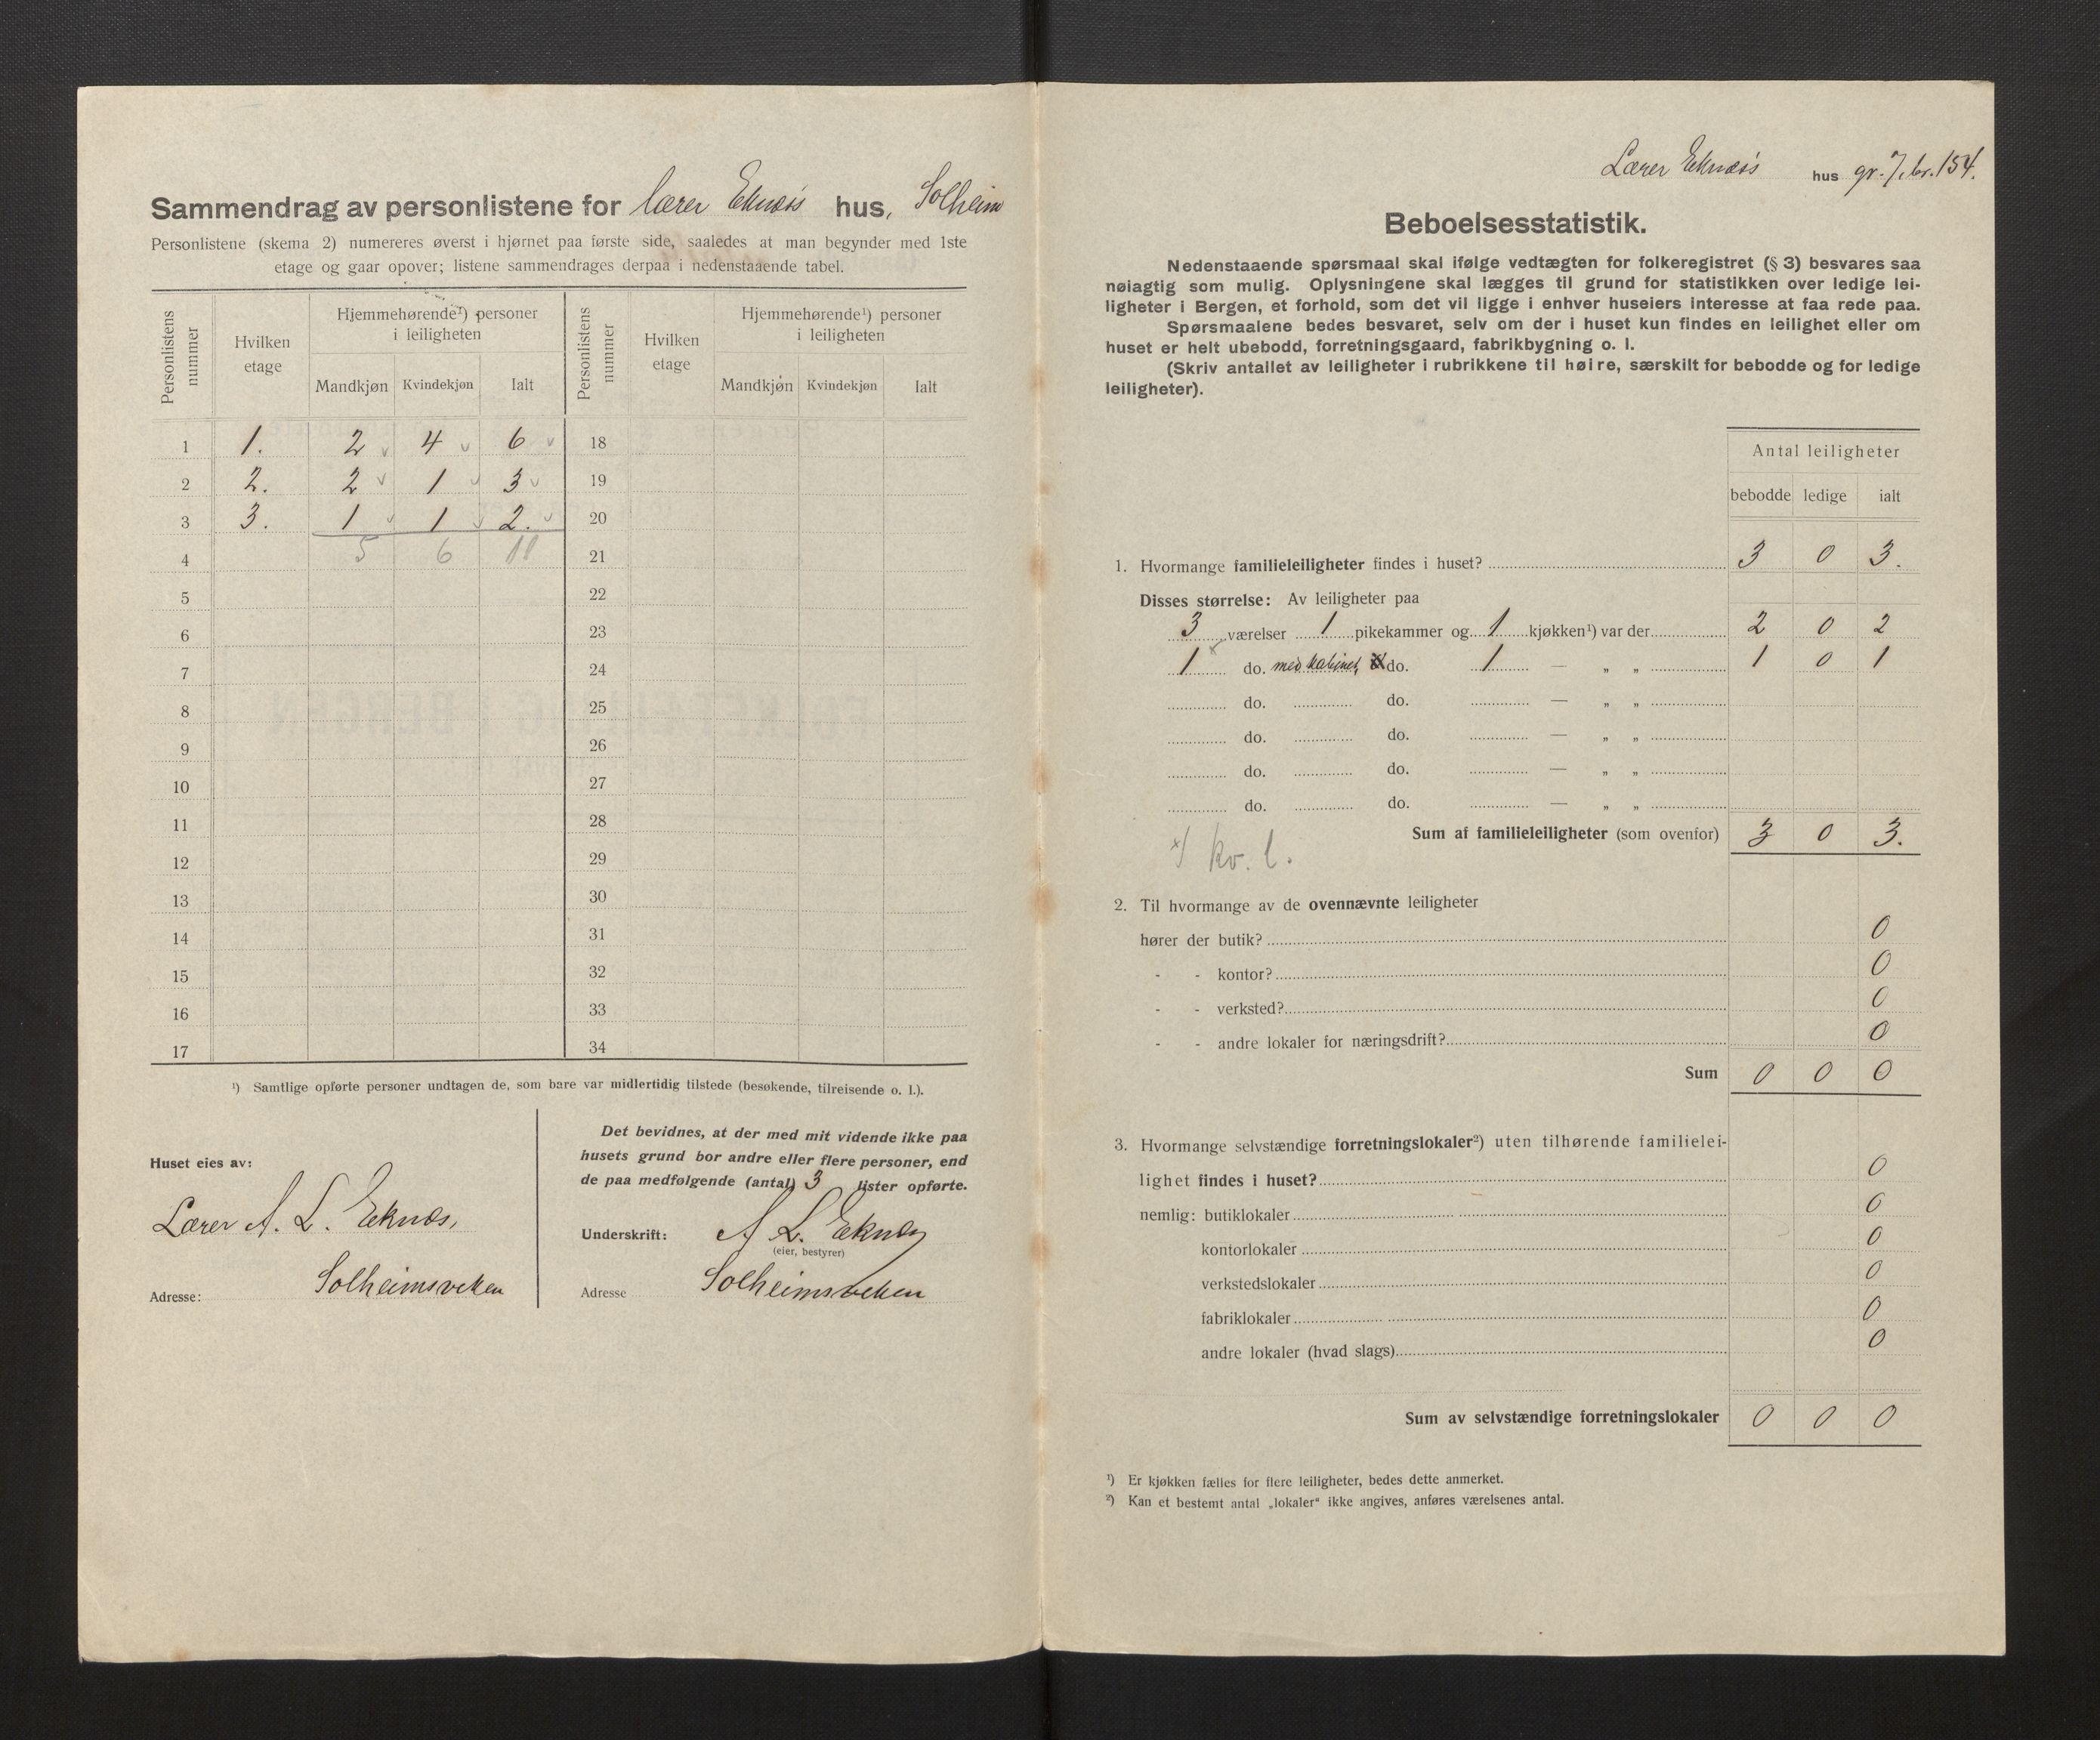 Sammendrag av personlistene for Lærer Eknæs's hus, Solheim
Personlistene (skema 2) numereres øverst i hjørnet paa første side, saaledes at man begynder med 1ste
etage og gaar opover; listene sammendrages derpaa i nedenstaaende tabel.
Personlistens nummer
Hvilken etage
Hjemmehørende¹) personer i leiligheten
Mandkjøn Kvindekjøn Ialt
Personlistens nummer
Hvilken etage
Hjemmehørende¹) personer i leiligheten
Mandkjøn Kvindekjøn Ialt
1 1. 2 4 6 18
2 2. 2 1 3 19
3 3. 1 1 2. 20
4 5 6 11 21
5 22
6 23
7 24
8 25
9 26
10 27
11 28
12 29
13 30
14 31
15 32
16 33
17 34
¹) Samtlige opførte personer undtagen de, som bare var midlertidig tilstede (besøkende, tilreisende o. l.).
Huset eies av:
Lærer A. L. Eknæs,
Adresse: Solheimsveken
Det bevidnes, at der med mit vidende ikke paa
husets grund bor andre eller flere personer, end
de paa medfølgende (antal) 3 lister opførte.
Underskrift: A. L. Eknæs
(eier, bestyrer)
Adresse Solheimsveken
Lærer Eknæs's hus gr. 7, br. 154.
Beboelsesstatistik.
Nedenstaaende spørsmaal skal ifølge vedtægten for folkeregistret (§ 3) besvares saa
nøiagtig som mulig. Oplysningene skal lægges til grund for statistikken over ledige lei-
ligheter i Bergen, et forhold, som det vil ligge i enhver huseiers interesse at faa rede paa.
Spørsmaalene bedes besvaret, selv om der i huset kun findes en leilighet eller om
huset er helt ubebodd, forretningsgaard, fabrikbygning o. l.
(Skriv antallet av leiligheter i rubrikkene til høire, særskilt for bebodde og for ledige
leiligheter).
Antal leiligheter
bebodde ledige ialt
1. Hvormange familieleiligheter findes i huset? 3 0 3.
Disses størrelse: Av leiligheter paa
3 værelser 1 pikekammer og 1 kjøkken¹) var der 2 0 2
1 x do. med kabinet, do. 1 — „ „ 1 0 1
do. do. — „ „
do. do. — „ „
do. do. — „ „
do. do. — „ „
Sum af familieleiligheter (som ovenfor) 3 0 3.
x) kv. l.
2. Til hvormange av de ovennævnte leiligheter
hører der butik? 0
- - kontor? 0
- - verksted? 0
- - andre lokaler for næringsdrift? 0
Sum 0 0 0
3. Hvormange selvstændige forretningslokaler²) uten tilhørende familielei-
lighet findes i huset? 0
nemlig: butiklokaler 0
kontorlokaler 0
verkstedslokaler 0
fabriklokaler 0
andre lokaler (hvad slags) 0
Sum av selvstændige forretningslokaler 0 0 0
¹) Er kjøkken fælles for flere leiligheter, bedes dette anmerket.
²) Kan et bestemt antal „lokaler“ ikke angives, anføres værelsenes antal.